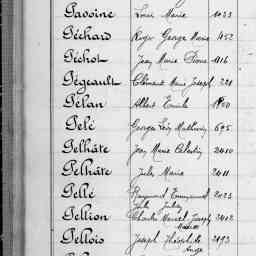 Pavoine Louis Marie 1033
Péchard Roger George Marie 452
Péchot Jean Marie Pierre 1116
Pégeault Clément Marie Joseph 221
Pélan Albert Emile
Pelé Georges Léon Mathurin 695
Pelhâte Jean Marie Célestin 2410
Pelhâte Jules Marie 2411
Pellé Raymond Emmanuel 2023
Jules
Pellion Charles Marcel Joseph 2402
Pellois Joseph Théophile 2193
Ange